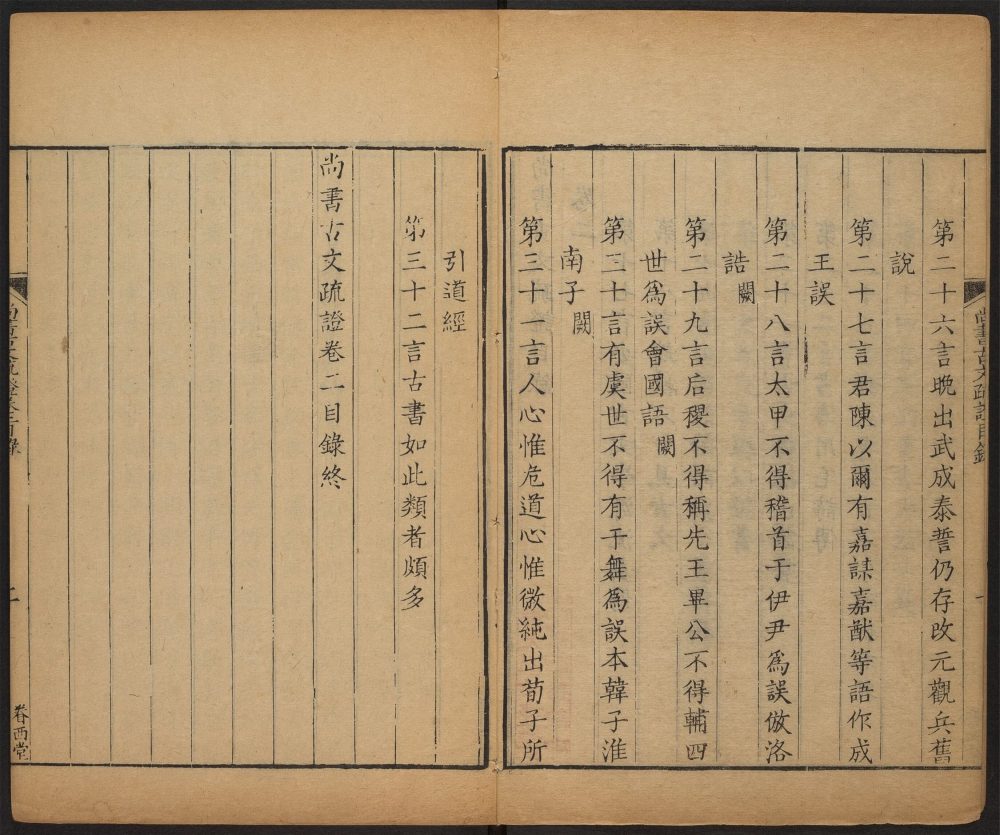 第二十六言晚出武成泰誓仍存改元觀兵舊
說
第二十七言君陳以爾有嘉謀嘉猷等語作成
王誤
第二十八言太甲不得稽首于伊尹爲誤倣洛
誥闕
第二十九言后稷不得稱先王畢公不得輔四
世爲誤會國語闕
第三十言有虞世不得有干舞爲誤本韓子淮
南子闕
第三十一言人心惟危道心惟微純出荀子所
引道經
第三十二言古書如此類者頗多
尚書古文疏證卷二目錄終
二
眷西堂